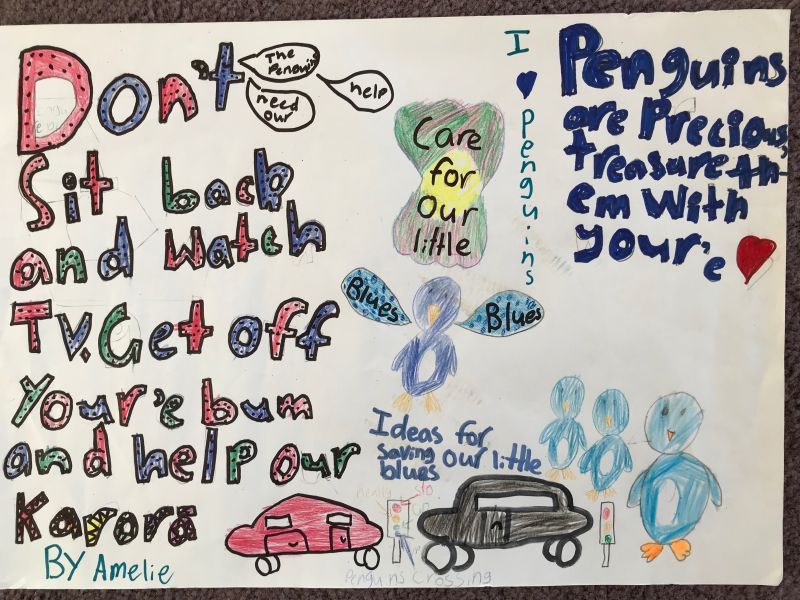 Don't
Sit back
and watch
Tv. Get off
Your'e bum
and help our
Karorā
BY Amelie
The
Penguins
need
our
help
Care
for
Our
little
Blues
Blues
I
Penguins
Penguins
are Precious,
treasure th-
em With
your'e
Ideas for
saving our little
blues
Penguins Crossing